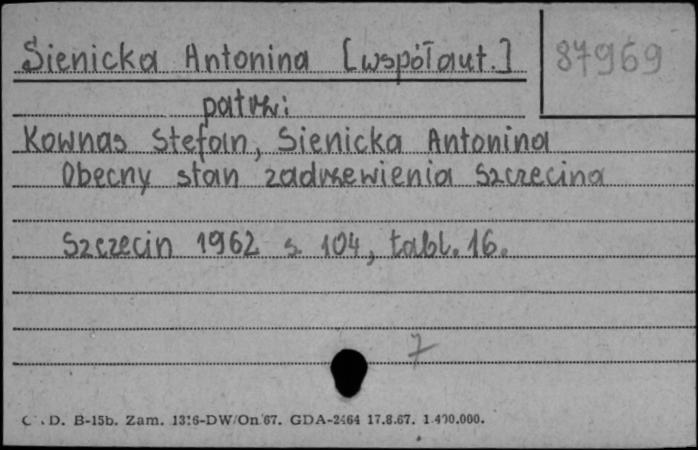 Sienicka Antonina [współaut.] 87969
patrz:
Kownas Stefan, Sienicka Antonina
Obecny stan zadrzewienia Szczecina
Szczecin 1962 s. 104, tabl. 16.
7
D. B-15b. Zam. 1316-DW/On/67. GDA-2464 17.8.67. 1.400.000.